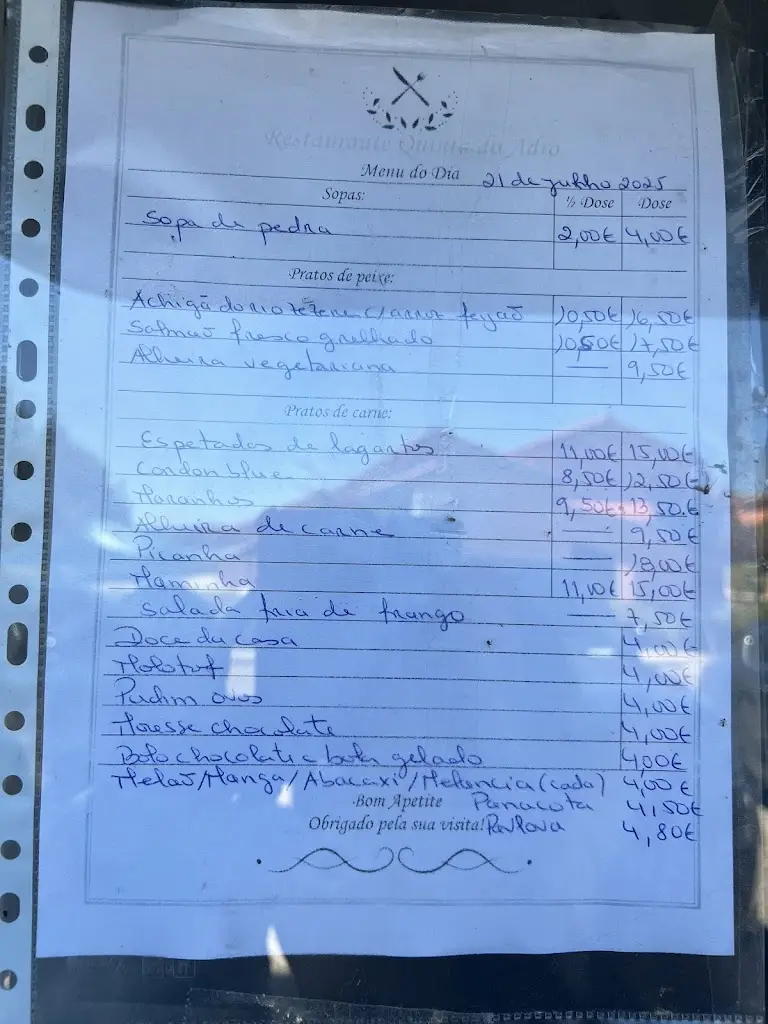 Restaurante Quinta do Adro
Menu do Dia 21 de julho 2025
Sopas: ½ Dose Dose
Sopa de pedra 2,00€ 4,00€
Pratos de peixe:
Achigã do rio zezere c/ arroz feijão 10,50€ 16,50€
Salmão fresco grelhado 10,50€ 17,50€
Alheira vegetariana — 9,50€
Pratos de carne:
Espetadas de lagartos 11,00€ 15,00€
Cordon blue 8,50€ 12,50€
Maranhos 9,50€ 13,50€
Alheira de carne — 9,50€
Picanha — 18,00€
Maminha 11,00€ 15,00€
Salada fria de frango — 7,50€
Doce da casa 4,00€
Molotof 4,00€
Pudim ovos 4,00€
Mousse chocolate 4,00€
Bolo chocolate c bola gelado 4,00€
Melão/Manga/Abacaxi/Melancia (cada) 4,00€
Bom Apetite Panacota 4,50€
Obrigado pela sua visita! Pavlova 4,80€